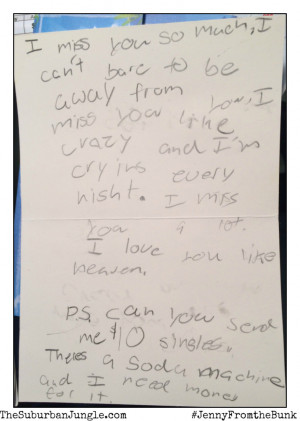 I miss you so much, I
can't bare to be
away from you, I
miss you like
crazy and I'm
crying every
night. I miss
you a lot.
I love you like
heaven.
P.S. can you send
me $10 singles.
Theres a Soda machine
and I need money
for it.
TheSuburbanJungle.com #JennyFromtheBunk